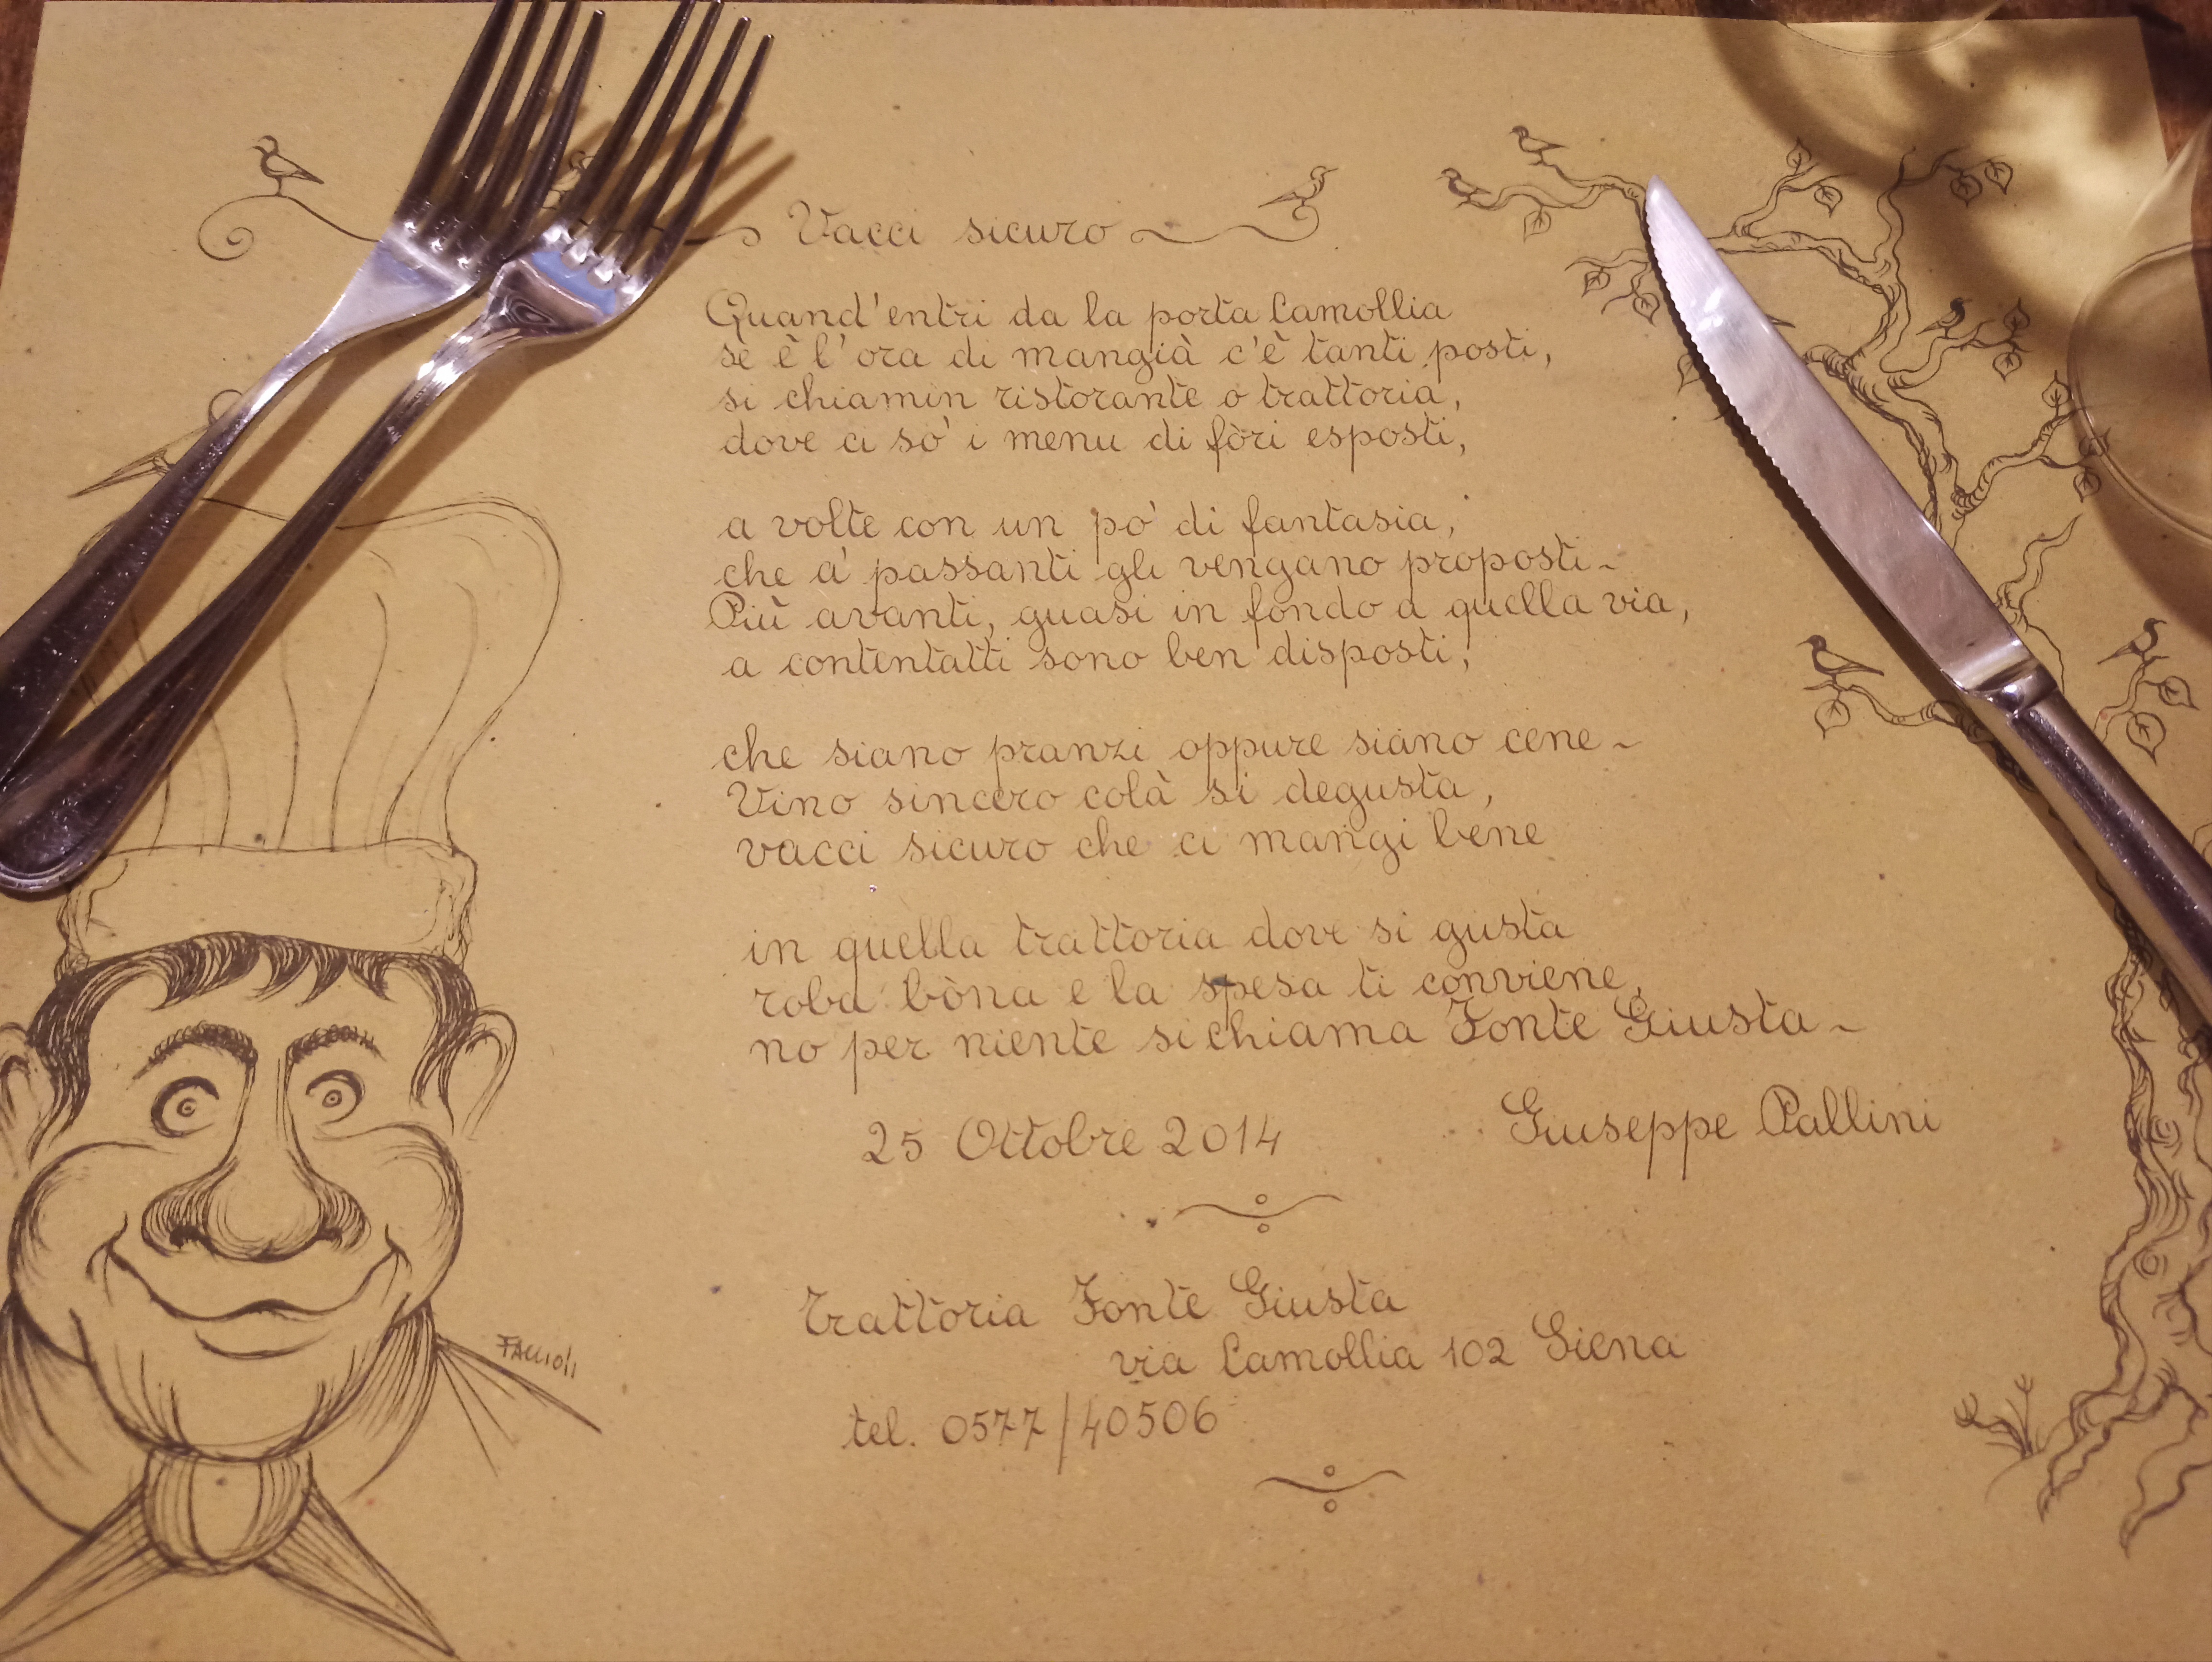 Vacci sicuro
Quand'entri da la porta Camollia
sè è l'ora di mangià c'è tanti posti,
si chiamin ristorante o trattoria,
dove ci so' i menu di fòri esposti,
a volte con un po' di fantasia,
che a' passanti gli vengano proposti~
Più avanti, quasi in fondo a quella via,
a contentatti sono ben disposti,
che siano pranzi oppure siano cene~
Vino sincero colà si degusta,
vacci sicuro che ci mangi bene
in quella trattoria dove si gusta
roba bòna e la spesa ti conviene,
no per niente si chiama Fonte Giusta~
25 Ottobre 2014 Giuseppe Pallini
Trattoria Fonte Giusta
via Camollia 102 Siena
tel. 0577/40506
FACCIOLI